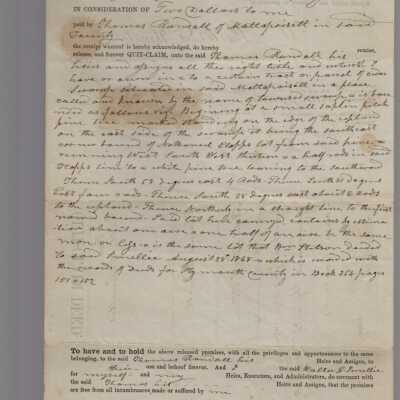 IN CONSIDERATION OF Two Dollars to me
paid by Thomas Randall of Mattapoisett in said
County
the receipt whereof is hereby acknowledged, do hereby remise,
release, and forever QUIT-CLAIM, unto the said Thomas Randall his
heirs and assigns all the right title and interest I
have or own in &amp; to a certain tract or parcel of
Swamp situated in said Mattapoisett in a place
called and known by the name of swamp &amp; is bound
as follows viz. Beginning at a small saplin pitch
pine tree marked standing on the edge of the upland
on the east side of the swamp it being the southeast
corner bound of Nathaniel Clapps lot from said pine
running West South West thirteen &amp; a half rods in said
Clapps line to a white pine tree leaning to the southward
Thence South 58 degrees east 4 rods Thence South degrees
East four rods Thence North 58 degrees east about 2 rods
to the upland Thence Northerly in a straight line to the first
named bound. Said lot here conveyed contains by
about one acre some half of an acre be the same
more or less &amp; is the same lot that Wm deeded
to said August 25th 1868 which is recorded with
the records of Deeds for Plymouth County in Book 352 pages
151 &amp; 152
To have and to hold the above released premises, with all the privileges and appurtenances to the same
belonging, to the said Thomas Randall his Heirs and Assigns, to
their use and behoof forever. And I the said Walter
for myself and my Heirs, Executors, and Administrators, do covenant with
the said Thomas his Heirs and Assigns, that the premises
are free from all incumbrances made or suffered by me